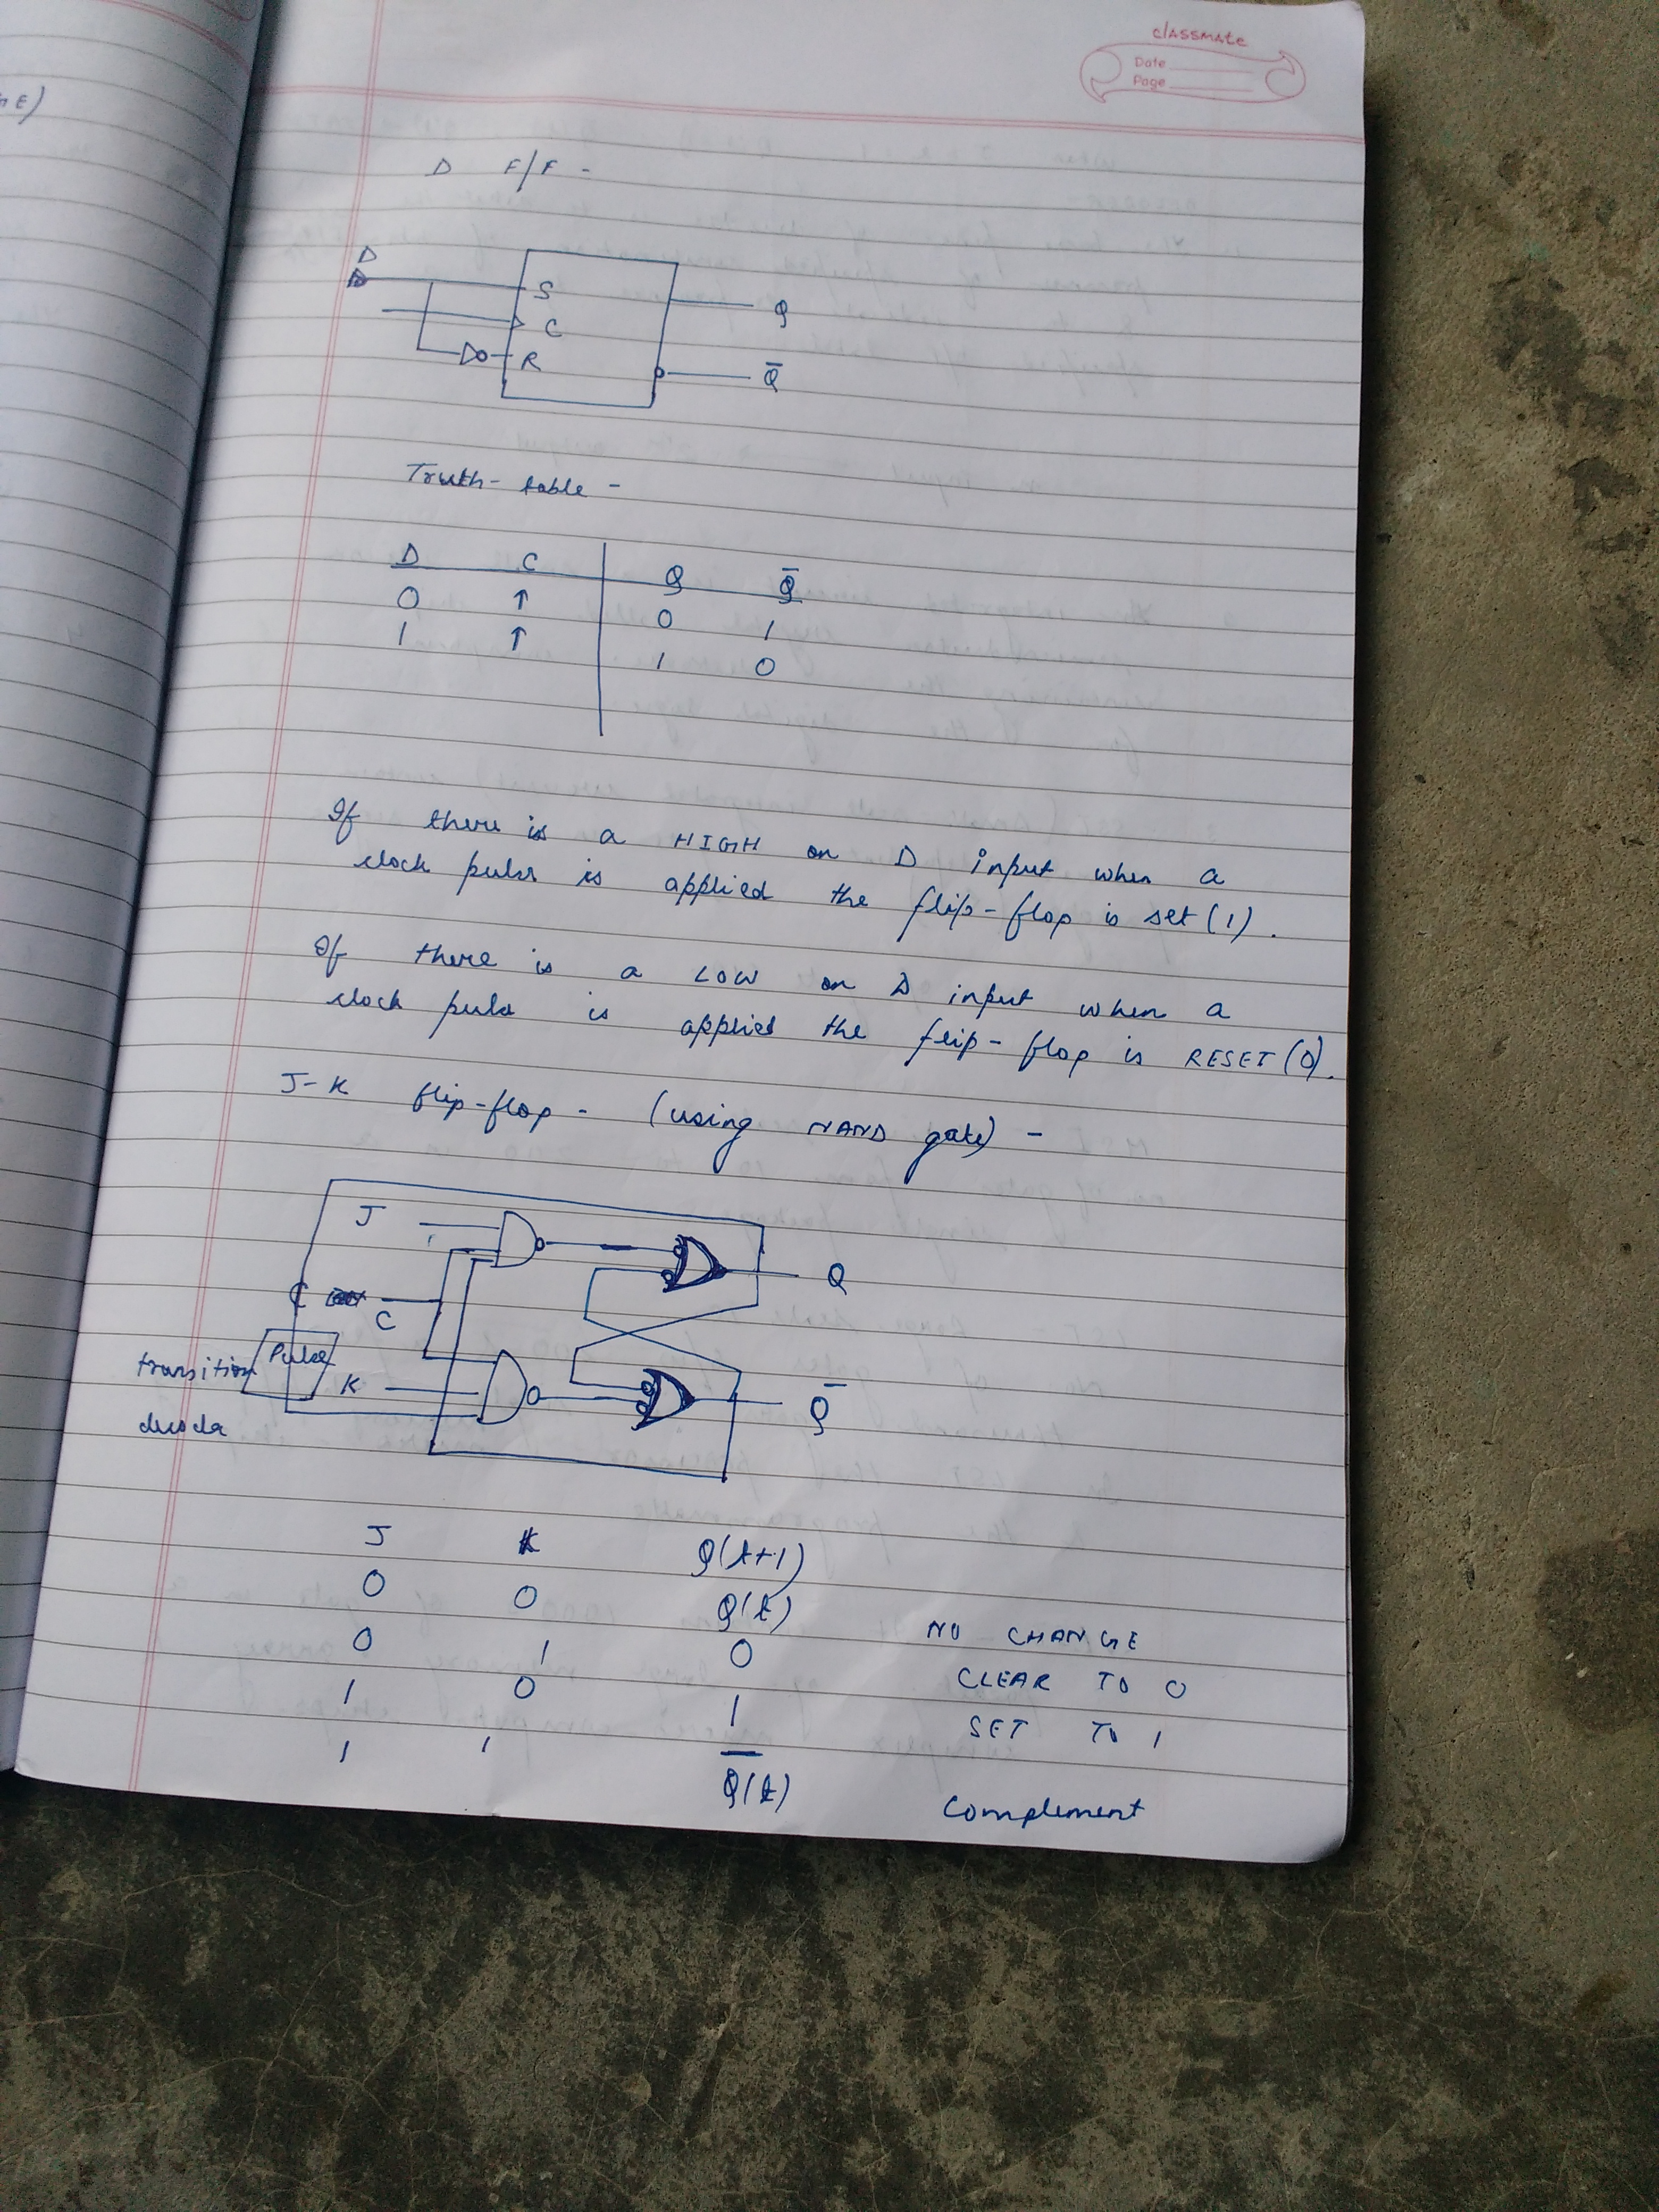 classmate
Date
Page
GE)
D F/F -
D
S
C
R
Q
Q̅
Truth- table -
D C Q Q̅
0 ↑ 0 1
1 ↑ 1 0
If there is a HIGH on D input when a
clock pulse is applied the flip-flop is set (1).
If there is a LOW on D input when a
clock pulse is applied the flip-flop is RESET (0).
J-K flip-flop - (using NAND gate) -
J
Q
C
C
transition
Pulse
K
Q̅
J K Q(t+1)
0 0 Q(t) NO CHANGE
0 1 0 CLEAR TO 0
1 0 1 SET TO 1
1 1 Q̅(t) Complement